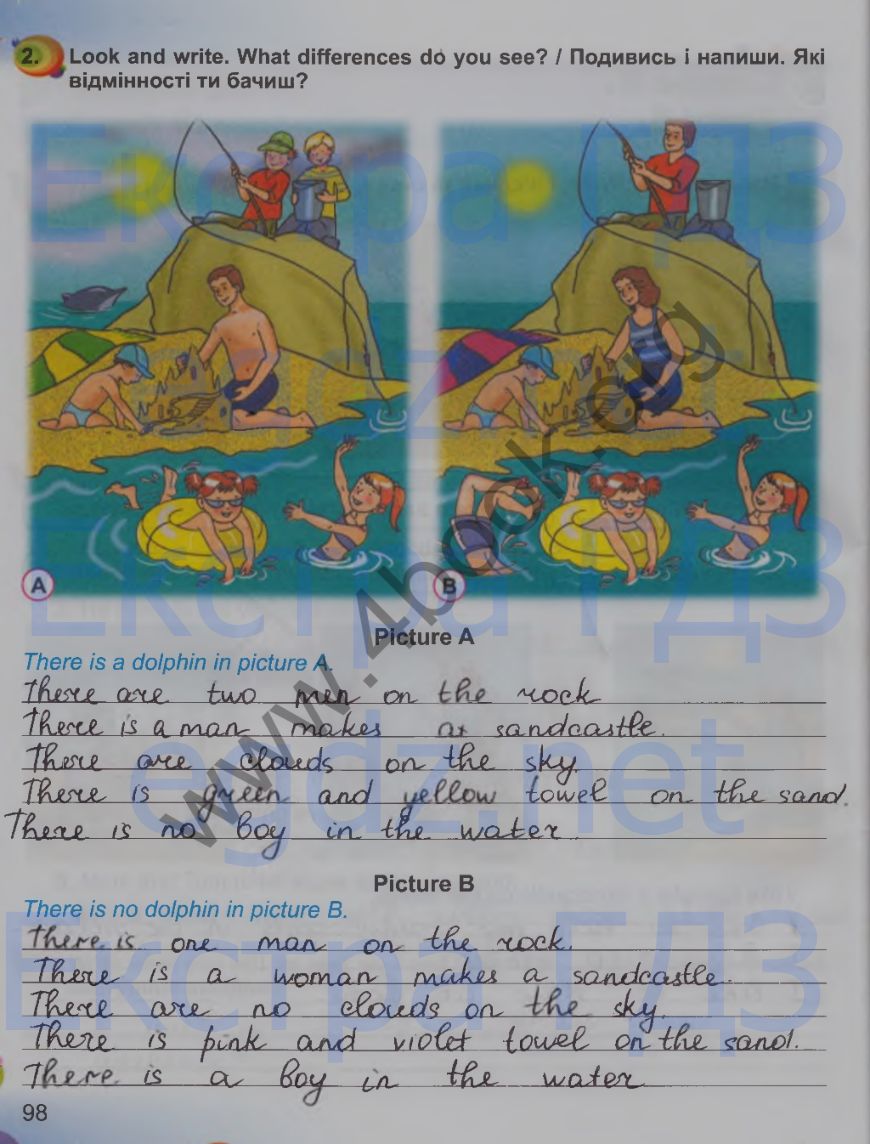 2. Look and write. What differences do you see? / Подивись і напиши. Які
відмінності ти бачиш?
Екстра ГДЗ
egdz.net
www.4book.org
A
B
Екстра ГДЗ
Picture A
There is a dolphin in picture A.
There are two men on the rock
There is a man makes a sandcastle.
There are clouds on the sky.
There is green and yellow towel on the sand.
There is no boy in the water.
egdz.net
Picture B
There is no dolphin in picture B.
There is one man on the rock.
There is a woman makes a sandcastle.
There are no clouds on the sky.
There is pink and violet towel on the sand.
There is a boy in the water
Екстра ГДЗ
98